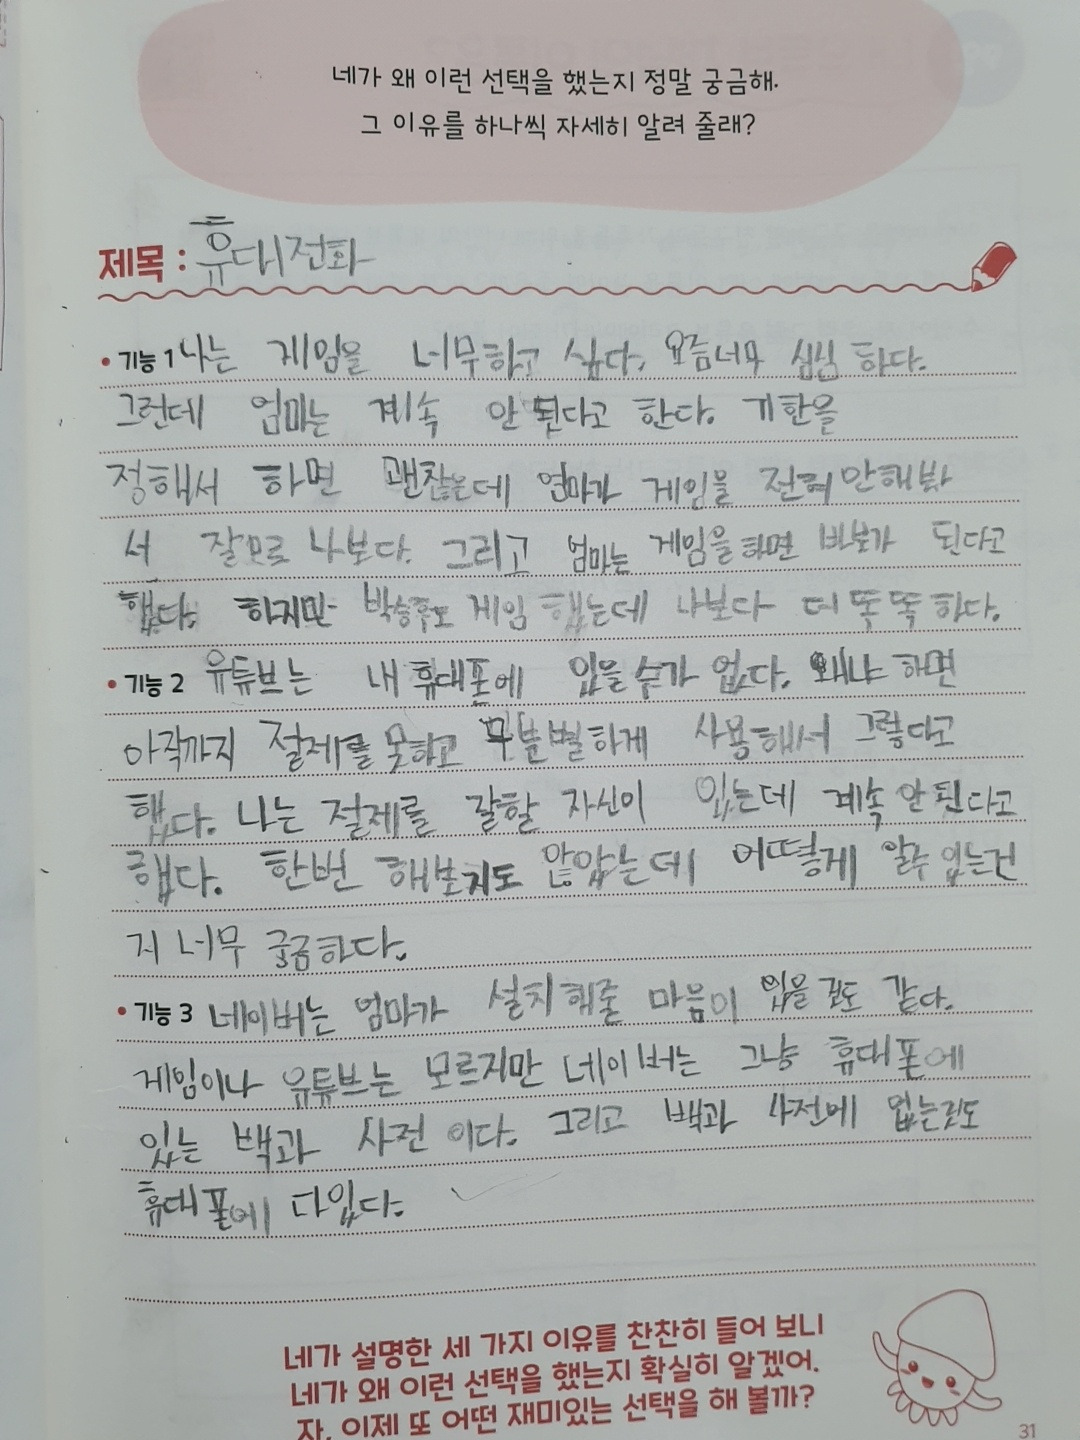 네가 왜 이런 선택을 했는지 정말 궁금해.
그 이유를 하나씩 자세히 알려 줄래?
제목 : 휴대전화
• 기능 1 나는 게임을 너무하고 싶다. 요즘너무 심심 하다.
그런데 엄마는 계속 안 된다고 한다. 기한을
정해서 하면 괜찮은데 엄마가 게임을 전혀 안해봐
서 잘모르 나보다. 그리고 엄마는 게임을하면 바보가 된다고
했다. 하지만 박승후도 게임 했는데 나보다 더 똑똑 하다.
• 기능 2 유튜브는 내 휴대폰에 있을 수가 없다. 왜냐 하면
아직까지 절제를 못하고 무분별하게 사용해서 그렇다고
했다. 나는 절제를 잘할 자신이 있는데 계속 안 된다고
했다. 한번 해보지도 않았는데 어떻게 알수 있는건
지 너무 궁금하다.
• 기능 3 네이버는 엄마가 설치해줄 마음이 있을 것도 같다.
게임이나 유튜브는 모르지만 네이버는 그냥 휴대폰에
있는 백과 사전 이다. 그리고 백과 사전에 없는것도
휴대폰에 다있다.
네가 설명한 세 가지 이유를 찬찬히 들어 보니
네가 왜 이런 선택을 했는지 확실히 알겠어.
자, 이제 또 어떤 재미있는 선택을 해 볼까?
31